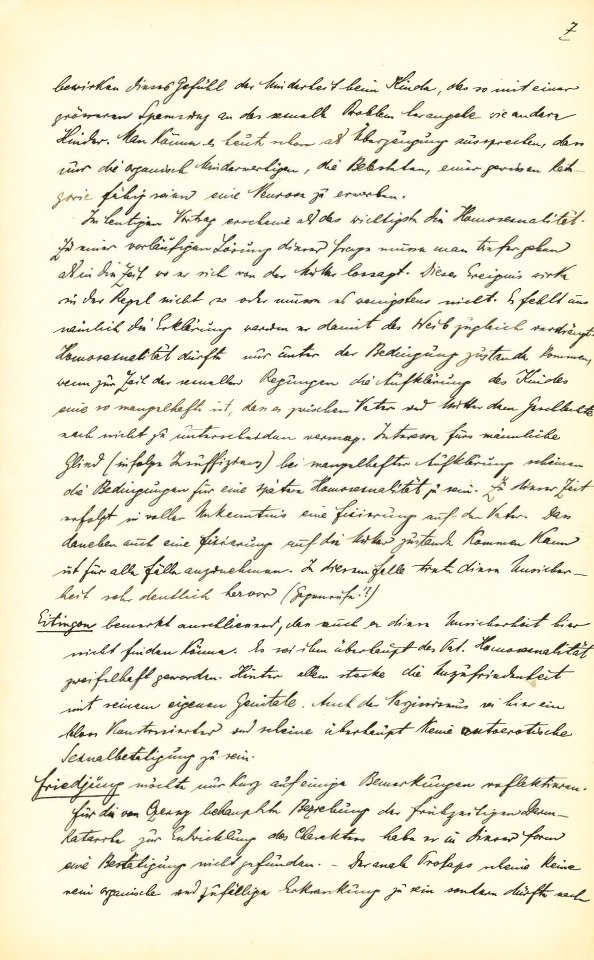 7
bewirken dieses Gefühl der Minderheit beim Kinde, das so mit einer
grösseren Spannung an das sexuelle Problem herangehe wie andere
Kinder. Man könne es heute schon als Überzeugung aussprechen, dass
nur die organisch Minderwertigen, die Belasteten, einer gewissen Kate-
gorie fähig seien eine Neurose zu erwerben.
Im heutigen Vortrag erscheine als das wichtigste die Homosexualität.
Zu einer vorläufigen Lösung dieser Frage müsse man tiefer gehen
als in die Zeit wo er sich von der Mutter lossagt. Dieses Ereignis wirke
in der Regel nicht so oder müsse es wenigstens nicht. Es fehlt uns
nämlich die Erklärung warum er damit das Weib zugleich verdrängt.
Homosexualität dürfte nur unter der Bedingung zustande kommen,
wenn zur Zeit der sexuellen Regungen die Aufklärung des Kindes
eine so mangelhafte ist, dass es zwischen Vater und Mutter dem Geschlechte
nach nicht zu unterscheiden vermag. Interesse fürs männliche
Glied (infolge Insuffizienz) bei mangelhafter Aufklärung scheinen
die Bedingungen für eine spätere Homosexualität zu sein. Zu dieser Zeit
erfolgt in voller Unkenntnis eine Fixierung auf den Vater. Dass
daneben auch eine Fixierung auf die Mutter zustande kommen kann
ist für alle Fälle anzunehmen. In diesem Falle trete diese Unsicher-
heit sehr deutlich hervor
Eitingon bemerkt anschliessend, dass auch er diese Unsicherheit hier
nicht finden könne. Es sei ihm überhaupt des Pat. Homosexualität
zweifelhaft geworden. Hinter allem stecke die Unzufriedenheit
mit seinem eigenen Genitale. Auch der Narzissismus sei hier ein
bloss und scheine überhaupt keine autoerotische
Sexualbetätigung zu sein.
Friedjung möchte nur kurz auf einige Bemerkungen reflektieren.
Für die von Czerny behauptete Beziehung der frühzeitigen Darm-
katarrhe zur Entwicklung des Charakters habe er in dieser Form
eine Bestätigung nicht gefunden. – Der anale Prolaps scheine keine
rein organische und zufällige Erkrankung zu sein sondern dürfte nach